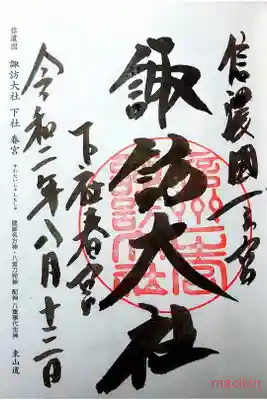 信濃國一之宮
諏訪大社
下社春宮
令和二年八月十二日
信濃国 諏訪大社 下社 春宮 すわたいしゃしもしゃ 建御名方神・八坂刀売神 配神 八重事代主神 東山道